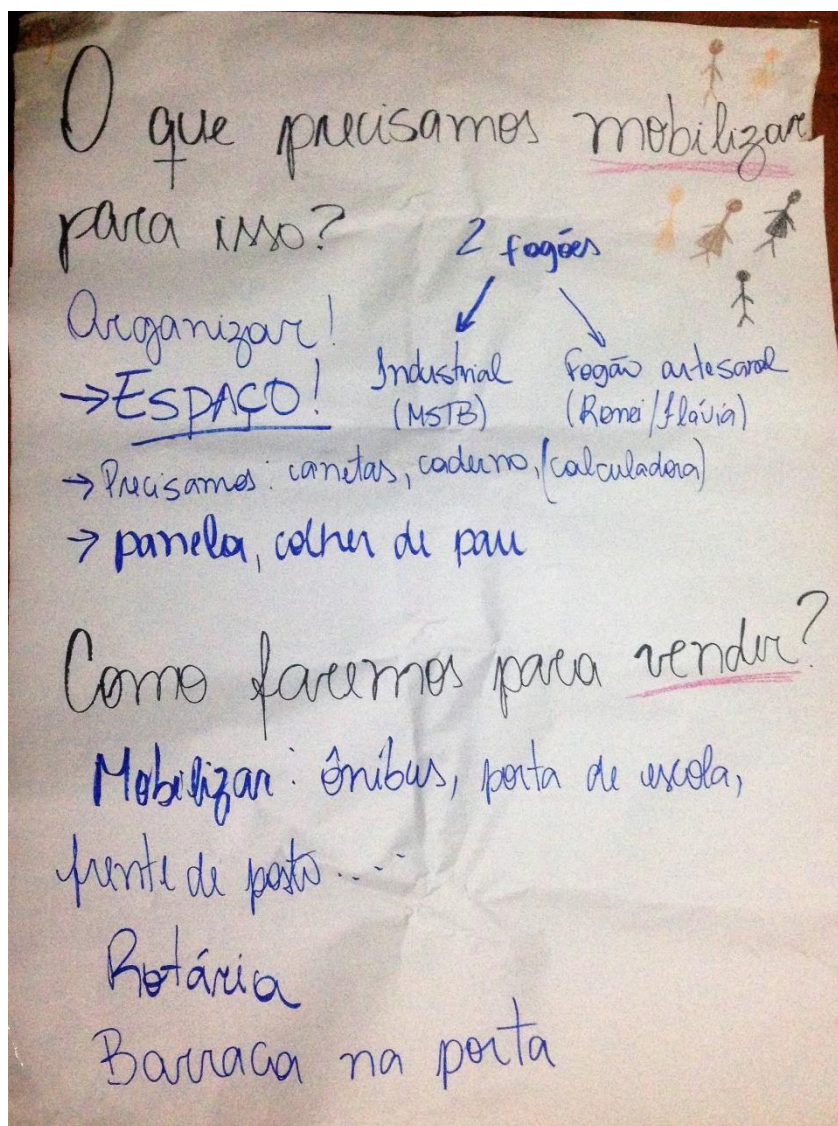 O que precisamos mobilizar
para isso?
2 fogões
Organizar!
→ ESPAÇO!
Industrial
(MSTB)
Fogão artesanal
(Ronei/Flávia)
→ Precisamos: canetas, caderno, (calculadora)
→ panela, colher de pau
Como faremos para vender?
Mobilizar: ônibus, porta de escola,
frente de posto....
Rotária
Barraca na porta